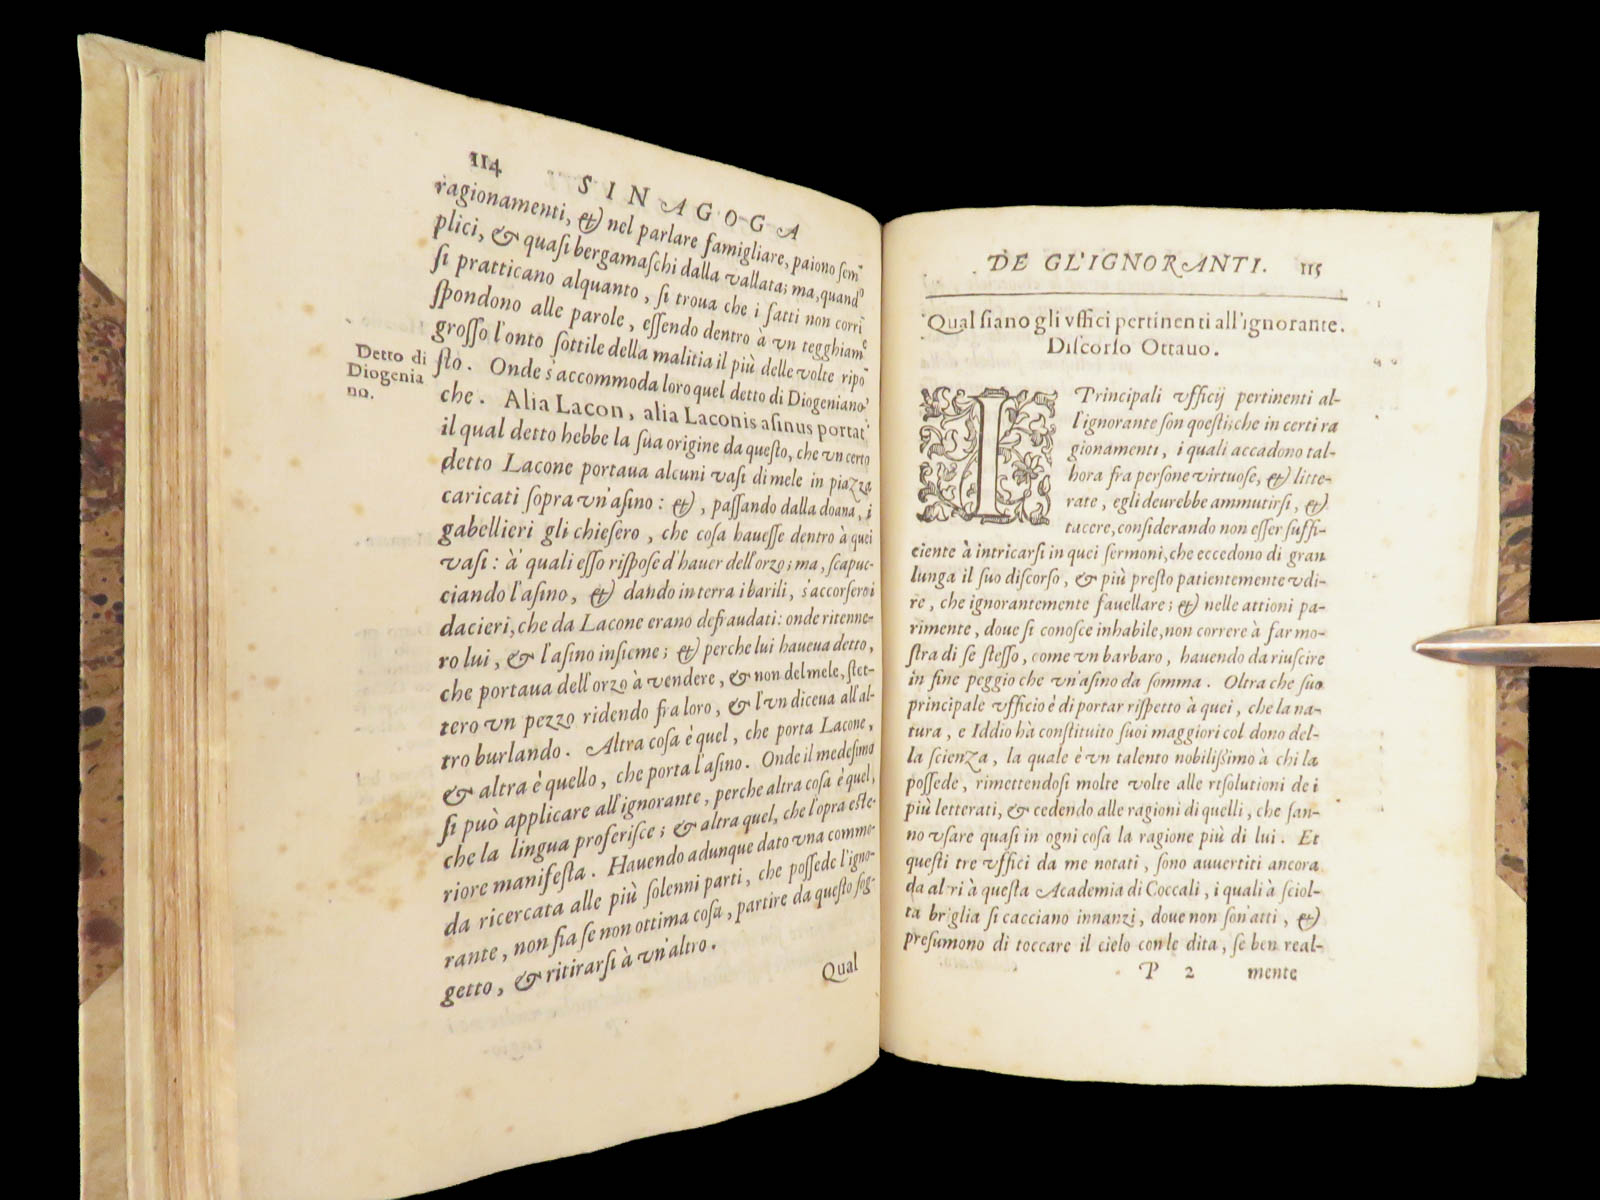 114 SINAGOGA
ragionamenti, & nel parlare famigliare, paiono sem̄
plici, & quasi bergamaschi dalla vallata; ma, quand'o
si pratticano alquanto, si troua che i fatti non corri
spondono alle parole, essendo dentro à vn tegghiame
grosso l'onto sottile della malitia il più delle volte ripo
sto. Onde s'accommoda loro quel detto di Diogeniano
Detto di
Diogenia
no.
che. Alia Lacon, alia Laconis asinus portat
il qual detto hebbe la sua origine da questo, che vn certo
detto Lacone portaua alcuni vasi di mele in piazza
caricati sopra vn'asino: &, passando dalla doana, i
gabellieri gli chiesero, che cosa hauesse dentro à quei
vasi: à quali esso rispose d'hauer dell'orzo; ma, scapuc-
ciando l'asino, & dando in terra i barili, s'accorsero i
dacieri, che da Lacone erano defraudati: onde ritenne-
ro lui, & l'asino insieme; & perche lui haueua detto,
che portaua dell'orzo à vendere, & non del mele, stet-
tero vn pezzo ridendo fra loro, & l'vn diceua all'al-
tro burlando. Altra cosa è quel, che porta Lacone,
& altra è quello, che porta l'asino. Onde il medesimo
si può applicare all'ignorante, perche altra cosa è quel,
che la lingua proferisce; & altra quel, che l'opra este-
riore manifesta. Hauendo adunque dato vna commo-
da ricercata alle più solenni parti, che possede l'igno-
rante, non fia se non ottima cosa, partire da questo sog-
getto, & ritirarsi à vn'altro.
Qual
DE GL'IGNORANTI. 115
Qual siano gli vffici pertinenti all'ignorante.
Discorso Ottauo.
I Principali vfficij pertinenti al-
l'ignorante son qoesti; che in certi ra
gionamenti, i quali accadono tal-
hora fra persone virtuose, & litte-
rate, egli deurebbe ammutirsi, &
tacere, considerando non esser suffi-
ciente à intricarsi in quei sermoni, che eccedono di gran
lunga il suo discorso, & più presto patientemente vdi-
re, che ignorantemente fauellare; & nelle attioni pa-
rimente, doue si conosce inhabile, non correre à far mo-
stra di se stesso, come vn barbaro, hauendo da riuscire
in fine peggio che vn'asino da somma. Oltra che suo
principale vfficio è di portar rispetto à quei, che la na-
tura, e Iddio hà constituito suoi maggiori col dono del-
la scienza, la quale è vn talento nobilissimo à chi la
possede, rimettendosi molte volte alle risolutioni de i
più letterati, & cedendo alle ragioni di quelli, che san-
no vsare quasi in ogni cosa la ragione più di lui. Et
questi tre vffici da me notati, sono auuertiti ancora
da altri à questa Academia di Coccali, i quali à sciol-
ta briglia si cacciano innanzi, doue non son'atti, &
presumono di toccare il cielo con le dita, se ben real-
P 2 mente